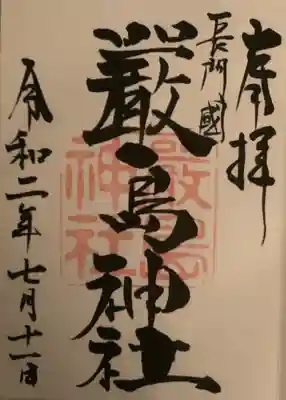 奉拝
長門國
厳島神社
厳島
神社
令和二年七月十一日